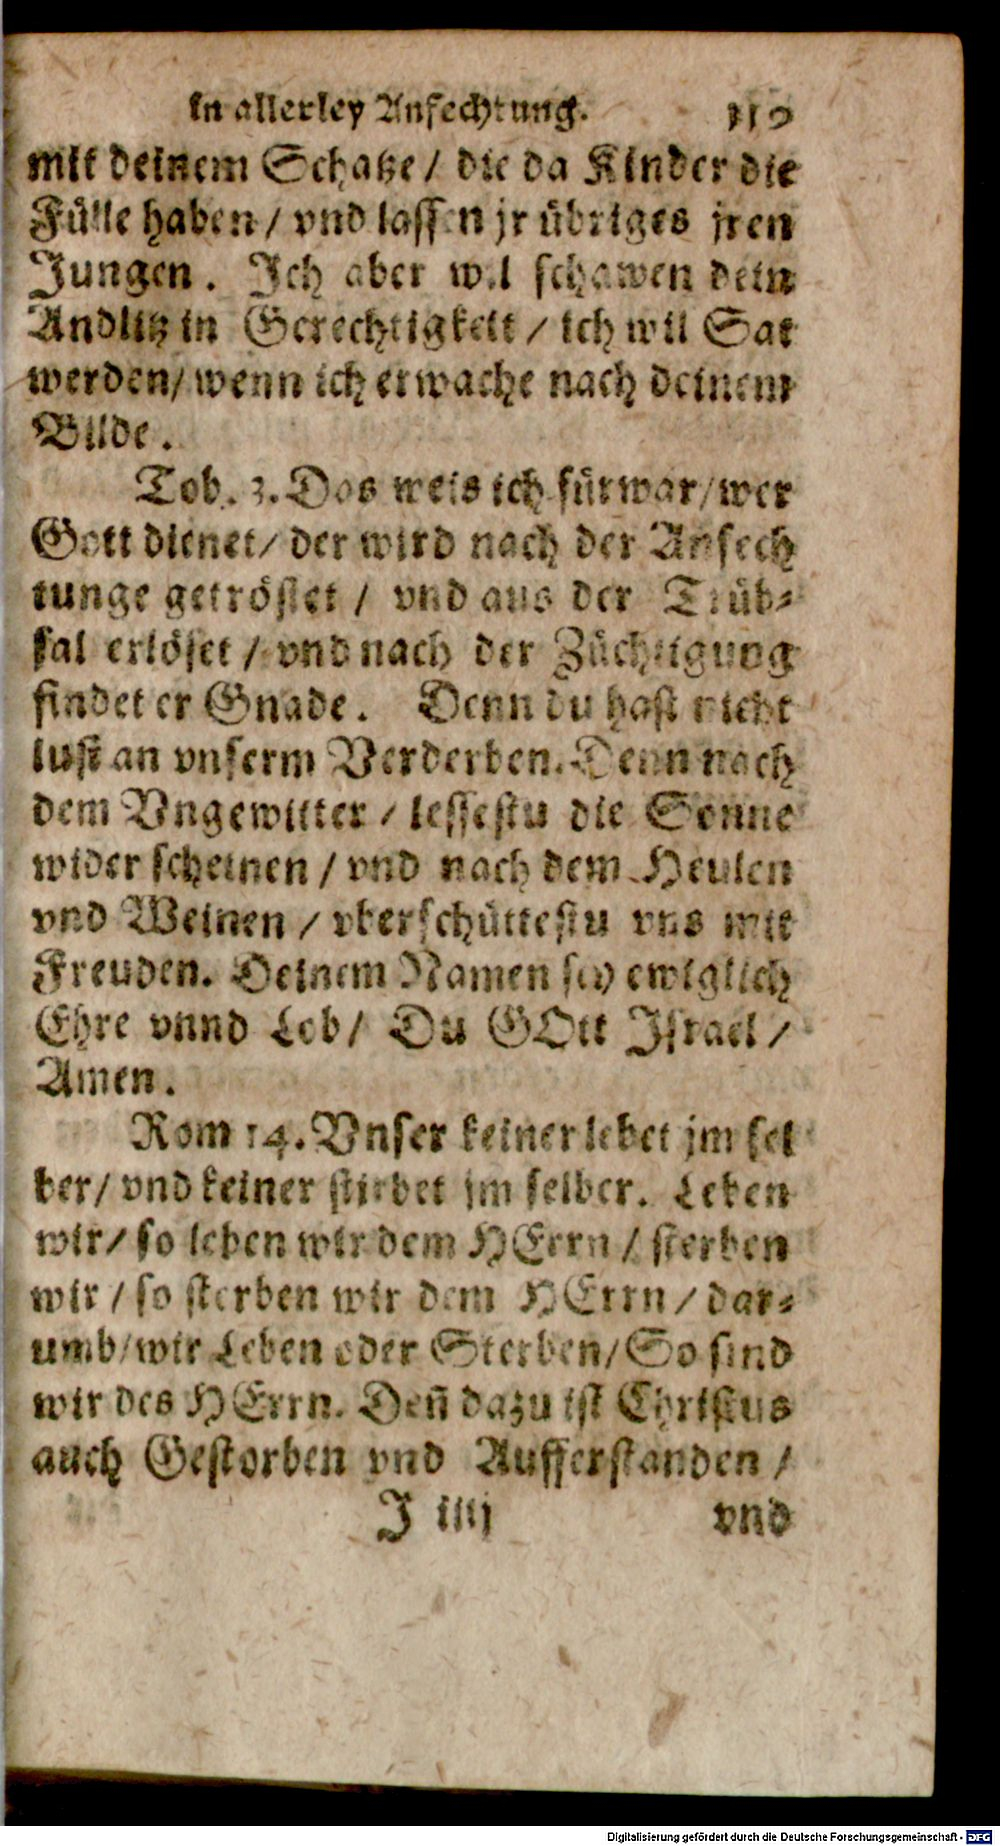 In allerley Anfechtung. 119
mit deinem Schatze / die da Kinder die
Fülle haben / vnd lassen jr übriges jren
Jungen. Ich aber wil schawen dein
Andlitz in Gerechtigkeit / ich wil Sat
werden / wenn ich erwache nach deinem
Bilde.
Tob. 3. Das weis ich fürwar / wer
Gott dienet / der wird nach der Anfech
tunge getröstet / vnd aus der Trüb-
sal erlöset / vnd nach der Züchtigung
findet er Gnade. Denn du hast nicht
lust an vnserm Verderben. Denn nach
dem Vngewitter / lessestu die Sonne
wider scheinen / vnd nach dem Heulen
vnd Weinen / vberschüttestu vns mit
Freuden. Deinem Namen sey ewiglich
Ehre vnnd Lob / Du GOtt Israel /
Amen.
Rom 14. Vnser keiner lebet jm sel
ber / vnd keiner stirbet jm selber. Leben
wir / so leben wir dem HErrn / sterben
wir / so sterben wir dem HErrn / dar-
umb / wir Leben oder Sterben / So sind
wir des HErrn. Den̄ dazu ist Christus
auch Gestorben vnd Aufferstanden /
J iiij vnd
Digitalisierung gefördert durch die Deutsche Forschungsgemeinschaft - DFG